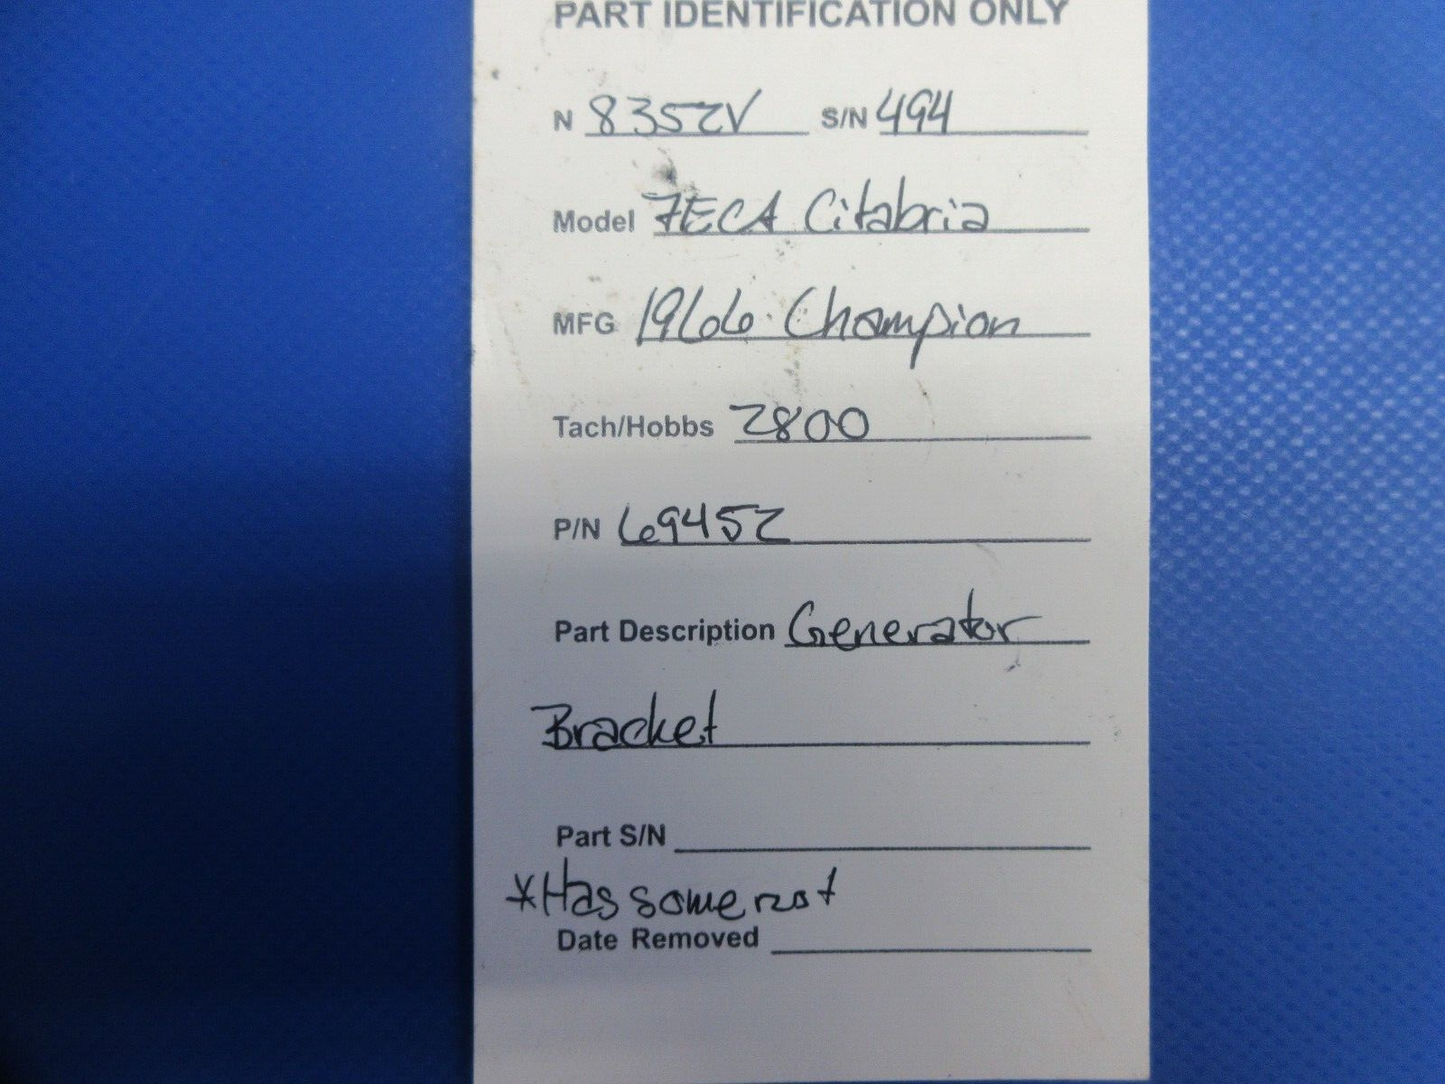 PART IDENTIFICATION ONLY
N 8352V S/N 494
Model 7ECA Citabria
MFG 1966 Champion
Tach/Hobbs 2800
P/N 69452
Part Description Generator
Bracket
Part S/N
*Has some rust
Date Removed